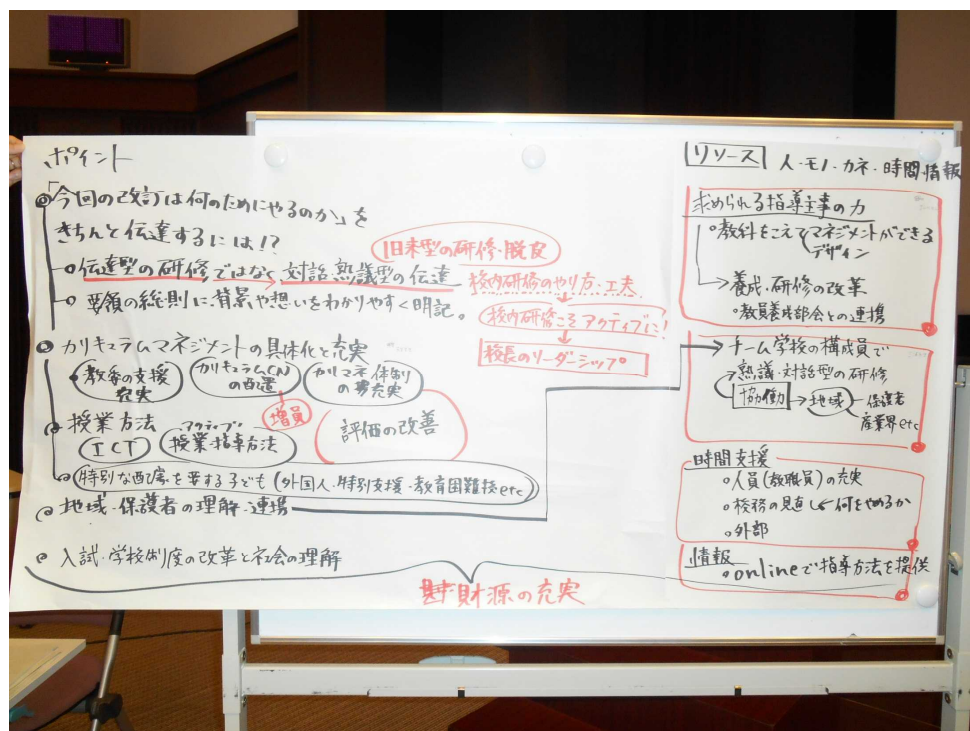 ポイント
「今回の改訂は何のためにやるのか」を
きちんと伝達するには!?
旧来型の研修・脱皮
伝達型の研修ではなく 対話・熟議型の伝達
校内研修のやり方・工夫
要領の総則に背景や想いをわかりやすく明記。
校内研修こそアクティブに!
校長のリーダーシップ
カリキュラムマネジメントの具体化と充実
教委の支援
充実
カリキュラムCN
の配置
カリマネ体制
の充実
増員
授業方法
ICT
アクティブ
授業・指導方法
評価の改善
特別な配慮を要する子ども(外国人・特別支援・教育困難校etc)
地域・保護者の理解・連携
入試・学校制度の改革と社会の理解
財源の充実
リソース 人・モノ・カネ・時間・情報
求められる指導主事の力
教科をこえてマネジメントができる
デザイン
養成・研修の改革
教員養成部会との連携
チーム学校の構成員で
熟議・対話型の研修
協働→地域 保護者
産業界etc
時間支援
人員(教職員)の充実
校務の見直し 何をやめるか
外部
情報
onlineで指導方法を提供